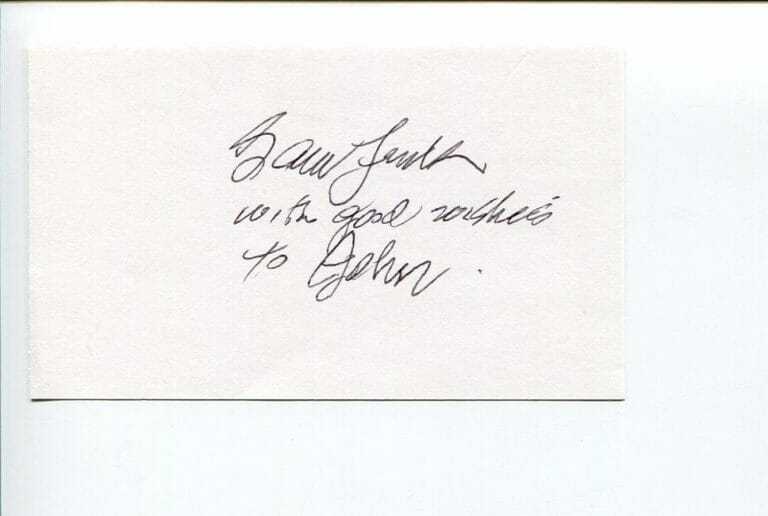 with good wishes
to John